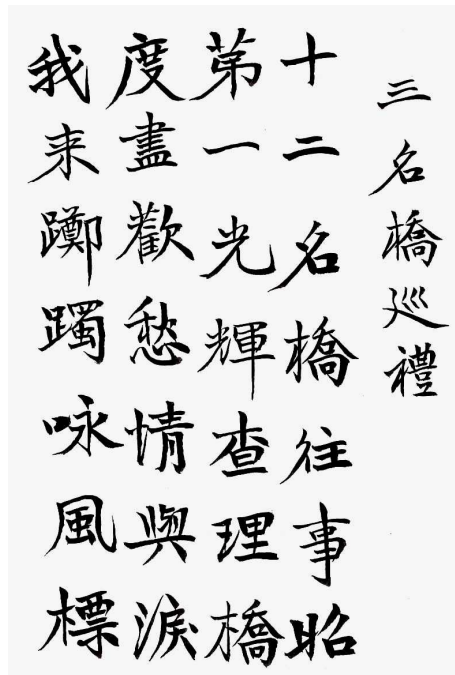 三名橋巡禮
十二名橋往事昭
第一光輝查理橋
度盡歡愁情與淚
我来躑躅咏風標